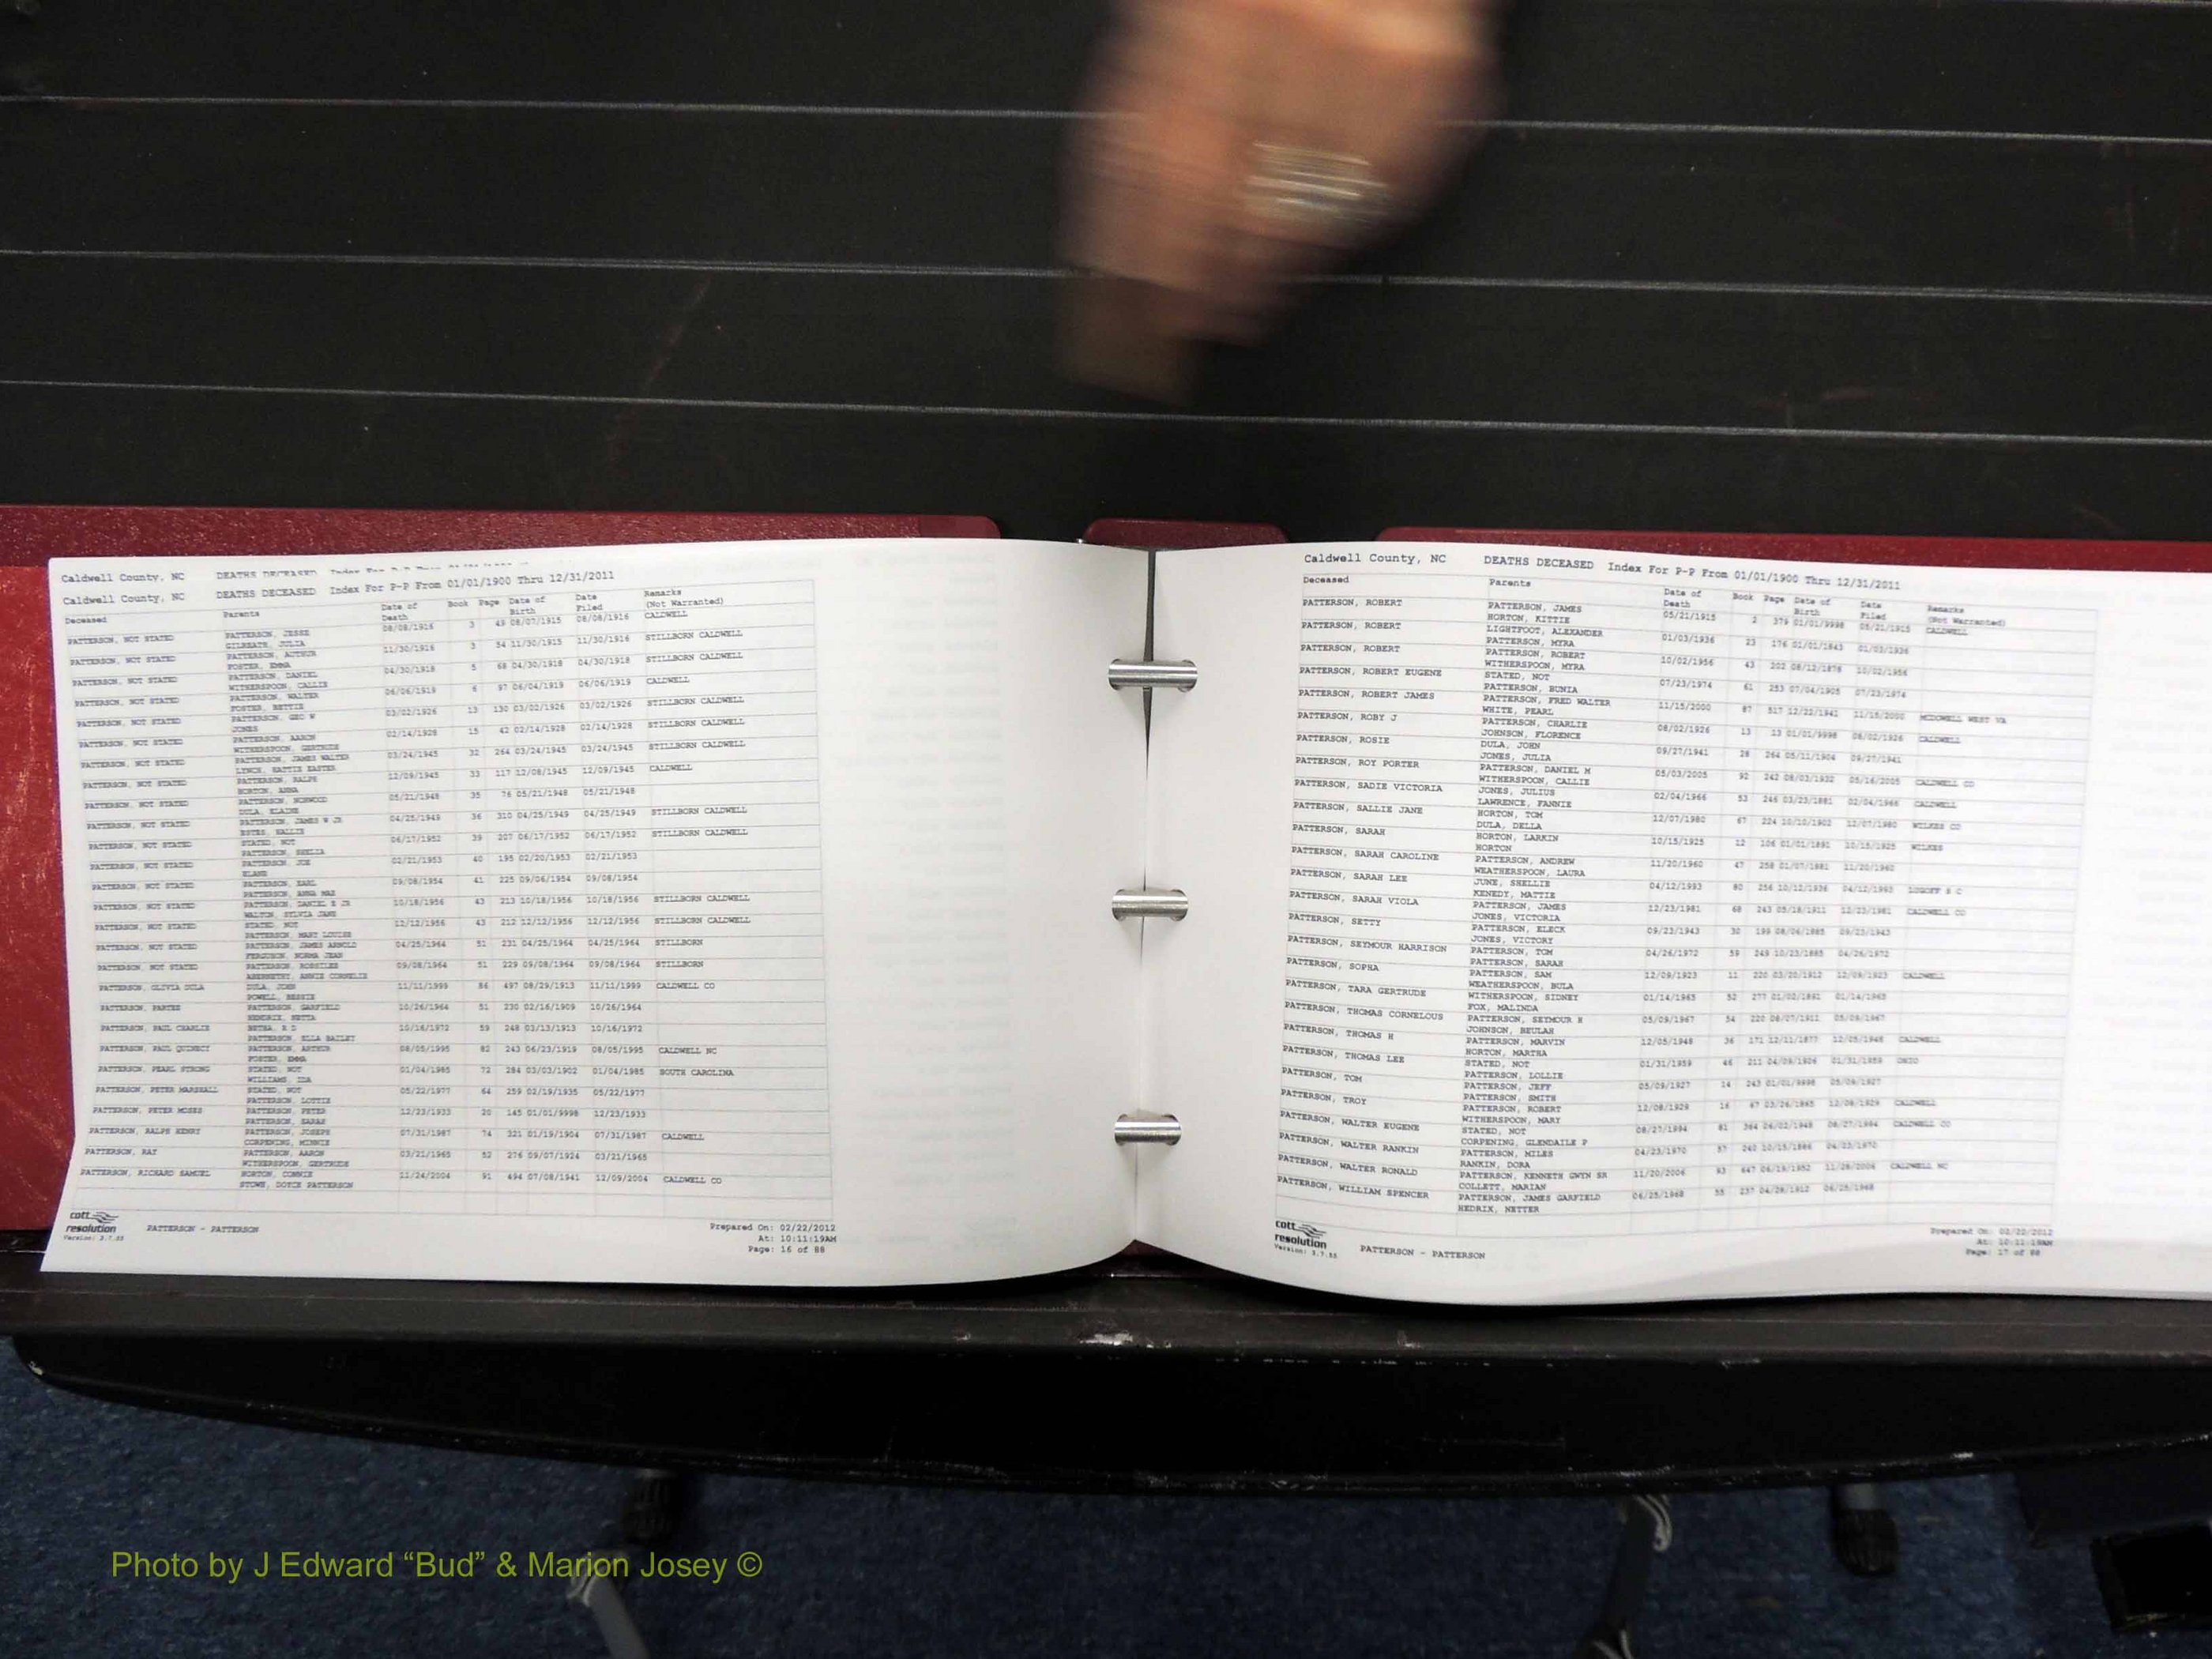 Caldwell County, NC DEATHS DECEASED
Caldwell County, NC DEATHS DECEASED Index For P-P From 01/01/1900 Thru 12/31/2011
Deceased Parents Date of Death Book Page Date of Birth Date Filed Remarks (Not Warranted)
PATTERSON, NOT STATED PATTERSON, JESSE 08/08/1916 3 49 08/07/1915 08/08/1916 CALDWELL
GILREATH, JULIA
PATTERSON, NOT STATED PATTERSON, ARTHUR 11/30/1916 3 54 11/30/1915 11/30/1916 STILLBORN CALDWELL
FOSTER, EMMA
PATTERSON, NOT STATED PATTERSON, DANIEL 04/30/1918 5 68 04/30/1918 04/30/1918 STILLBORN CALDWELL
WITHERSPOON, CALLIE
PATTERSON, NOT STATED PATTERSON, WALTER 06/06/1919 6 97 06/04/1919 06/06/1919 CALDWELL
FOSTER, BETTIE
PATTERSON, NOT STATED PATTERSON, GEO W 03/02/1926 13 130 03/02/1926 03/02/1926 STILLBORN CALDWELL
JONES
PATTERSON, NOT STATED PATTERSON, AARON 02/14/1928 15 42 02/14/1928 02/14/1928 STILLBORN CALDWELL
WITHERSPOON, GERTRUDE
PATTERSON, NOT STATED PATTERSON, JAMES WALTER 03/24/1945 32 264 03/24/1945 03/24/1945 STILLBORN CALDWELL
LYNCH, HATTIE EASTER
PATTERSON, NOT STATED PATTERSON, RALPH 12/09/1945 33 117 12/08/1945 12/09/1945 CALDWELL
HORTON, ANNA
PATTERSON, NOT STATED PATTERSON, NORWOOD 05/21/1948 35 76 05/21/1948 05/21/1948
DULA, ELAINE
PATTERSON, NOT STATED PATTERSON, JAMES W JR 04/25/1949 36 310 04/25/1949 04/25/1949 STILLBORN CALDWELL
ESTES, HALLIE
PATTERSON, NOT STATED STATED, NOT 06/17/1952 39 207 06/17/1952 06/17/1952 STILLBORN CALDWELL
PATTERSON, SHELIA
PATTERSON, NOT STATED PATTERSON, JOE 02/21/1953 40 195 02/20/1953 02/21/1953
BLAND
PATTERSON, NOT STATED PATTERSON, EARL 09/08/1954 41 225 09/06/1954 09/08/1954
PATTERSON, ANNA MAE
PATTERSON, NOT STATED PATTERSON, DANIEL E JR 10/18/1956 43 213 10/18/1956 10/18/1956 STILLBORN CALDWELL
WALTON, SYLVIA JANE
PATTERSON, NOT STATED STATED, NOT 12/12/1956 43 212 12/12/1956 12/12/1956 STILLBORN CALDWELL
PATTERSON, MARY LOUISE
PATTERSON, NOT STATED PATTERSON, JAMES ARNOLD 04/25/1964 51 231 04/25/1964 04/25/1964 STILLBORN
FERGUSON, NORMA JEAN
PATTERSON, NOT STATED PATTERSON, ROSSILEE 09/08/1964 51 229 09/08/1964 09/08/1964 STILLBORN
ABERNETHY, ANNIE CORNELIE
PATTERSON, OLIVIA DULA DULA, JOHN 11/11/1999 86 497 08/29/1913 11/11/1999 CALDWELL CO
POWELL, BESSIE
PATTERSON, PARTEE PATTERSON, GARFIELD 10/26/1964 51 230 02/16/1909 10/26/1964
HENDRIX, NETTA
PATTERSON, PAUL CHARLIE BETHA, R D 10/16/1972 59 248 03/13/1913 10/16/1972
PATTERSON, ELLA BAILEY
PATTERSON, PAUL QUINECY PATTERSON, ARTHUR 08/05/1995 82 243 06/23/1919 08/05/1995 CALDWELL NC
FOSTER, EMMA
PATTERSON, PEARL STRONG STATED, NOT 01/04/1985 72 284 03/03/1902 01/04/1985 SOUTH CAROLINA
WILLIAMS, IDA
PATTERSON, PETER MARSHALL STATED, NOT 05/22/1977 64 259 02/19/1935 05/22/1977
PATTERSON, LOTTIE
PATTERSON, PETER MOSES PATTERSON, PETER 12/23/1933 20 145 01/01/9998 12/23/1933
PATTERSON, SARAH
PATTERSON, RALPH HENRY PATTERSON, JOSEPH 07/31/1987 74 321 01/19/1904 07/31/1987 CALDWELL
CORPENING, MINNIE
PATTERSON, RAY PATTERSON, AARON 03/21/1965 52 276 09/07/1924 03/21/1965
WITHERSPOON, GERTRUDE
PATTERSON, RICHARD SAMUEL HORTON, CONNIE 11/24/2004 91 494 07/08/1941 12/09/2004 CALDWELL CO
STOWE, DOYCE PATTERSON
cott resolution
Version: 3.7.55
PATTERSON - PATTERSON
Prepared On: 02/22/2012
At: 10:11:19AM
Page: 16 of 88
Caldwell County, NC DEATHS DECEASED Index For P-P From 01/01/1900 Thru 12/31/2011
Deceased Parents Date of Death Book Page Date of Birth Date Filed Remarks (Not Warranted)
PATTERSON, ROBERT PATTERSON, JAMES 05/21/1915 2 379 01/01/9998 05/21/1915 CALDWELL
HORTON, KITTIE
PATTERSON, ROBERT LIGHTFOOT, ALEXANDER 01/03/1936 23 176 01/01/1843 01/03/1936
PATTERSON, MYRA
PATTERSON, ROBERT PATTERSON, ROBERT 10/02/1956 43 202 08/12/1876 10/02/1956
WITHERSPOON, MYRA
PATTERSON, ROBERT EUGENE STATED, NOT 07/23/1974 61 253 07/04/1905 07/23/1974
PATTERSON, BUNIA
PATTERSON, ROBERT JAMES PATTERSON, FRED WALTER 11/15/2000 87 517 12/22/1941 11/15/2000 MCDOWELL WEST VA
WHITE, PEARL
PATTERSON, ROBY J PATTERSON, CHARLIE 08/02/1926 13 13 01/01/9998 08/02/1926 CALDWELL
JOHNSON, FLORENCE
PATTERSON, ROSIE DULA, JOHN 09/27/1941 28 264 05/11/1904 09/27/1941
JONES, JULIA
PATTERSON, ROY PORTER PATTERSON, DANIEL M 05/03/2005 92 242 08/03/1932 05/16/2005 CALDWELL CO
WITHERSPOON, CALLIE
PATTERSON, SADIE VICTORIA JONES, JULIUS 02/04/1966 53 246 03/23/1881 02/04/1966 CALDWELL
LAWRENCE, FANNIE
PATTERSON, SALLIE JANE HORTON, TOM 12/07/1980 67 224 10/10/1902 12/07/1980 WILKES CO
DULA, DELLA
PATTERSON, SARAH HORTON, LARKIN 10/15/1925 12 106 01/01/1891 10/15/1925 WILKES
HORTON
PATTERSON, SARAH CAROLINE PATTERSON, ANDREW 11/20/1960 47 258 01/07/1881 11/20/1960
WEATHERSPOON, LAURA
PATTERSON, SARAH LEE JUNE, SHELLIE 04/12/1993 80 256 10/12/1936 04/12/1993 LUGOFF S C
KENEDY, MATTIE
PATTERSON, SARAH VIOLA PATTERSON, JAMES 12/23/1981 68 243 05/18/1911 12/23/1981 CALDWELL CO
JONES, VICTORIA
PATTERSON, SETTY PATTERSON, ELECK 09/23/1943 30 199 08/06/1885 09/23/1943
JONES, VICTORY
PATTERSON, SEYMOUR HARRISON PATTERSON, TOM 04/26/1972 59 249 10/23/1885 04/26/1972
PATTERSON, SARAH
PATTERSON, SOPHA PATTERSON, SAM 12/09/1923 11 220 03/20/1912 12/09/1923 CALDWELL
WEATHERSPOON, BULA
PATTERSON, TARA GERTRUDE WITHERSPOON, SIDNEY 01/14/1965 52 277 01/02/1891 01/14/1965
FOX, MALINDA
PATTERSON, THOMAS CORNELOUS PATTERSON, SEYMOUR H 05/09/1967 54 220 08/27/1911 05/09/1967
JOHNSON, BEULAH
PATTERSON, THOMAS H PATTERSON, MARVIN 12/05/1948 36 171 12/11/1877 12/05/1948 CALDWELL
HORTON, MARTHA
PATTERSON, THOMAS LEE STATED, NOT 01/31/1959 46 211 04/09/1926 01/31/1959 OHIO
PATTERSON, LOLLIE
PATTERSON, TOM PATTERSON, JEFF 05/09/1927 14 243 01/01/9998 05/09/1927
PATTERSON, SMITH
PATTERSON, TROY PATTERSON, ROBERT 12/08/1929 16 67 03/26/1865 12/08/1929 CALDWELL
WITHERSPOON, MARY
PATTERSON, WALTER EUGENE STATED, NOT 08/27/1994 81 364 06/02/1948 08/27/1994 CALDWELL CO
CORPENING, GLENDAILE P
PATTERSON, WALTER RANKIN PATTERSON, MILES 04/23/1970 57 240 10/15/1886 04/23/1970
RANKIN, DORA
PATTERSON, WALTER RONALD PATTERSON, KENNETH GWYN SR 11/20/2006 93 647 06/19/1952 11/28/2006 CALDWELL NC
COLLETT, MARIAN
PATTERSON, WILLIAM SPENCER PATTERSON, JAMES GARFIELD 06/25/1968 55 237 04/28/1912 06/25/1968
HEDRIX, NETTER
cott resolution
Version: 3.7.55
PATTERSON - PATTERSON
Prepared On: 02/22/2012
At: 10:11:19AM
Page: 17 of 88
Photo by J Edward “Bud” & Marion Josey ©